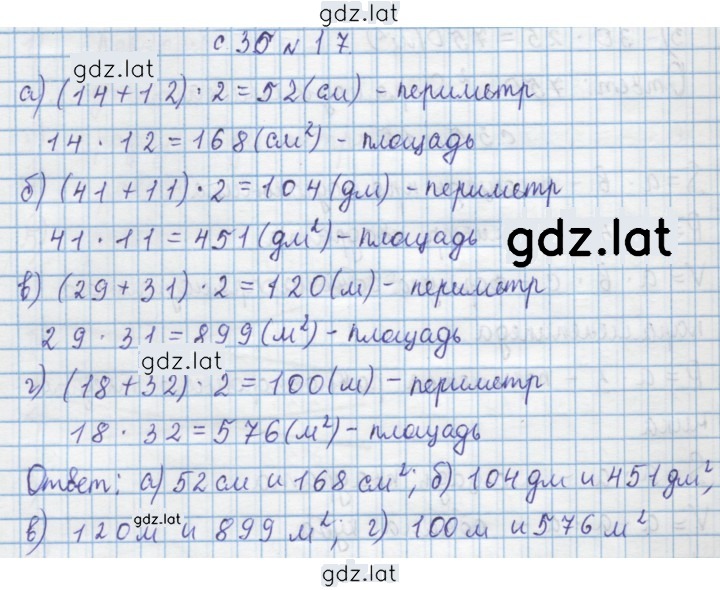 gdz.lat
с 35 № 17.
gdz.lat
а) (14+12)·2=52(см) - периметр
14·12=168(см²) - площадь
б) (41+11)·2=104(дм) - периметр
41·11=451(дм²) - площадь
gdz.lat
в) (29+31)·2=120(м) - периметр
29·31=899(м²) - площадь
gdz.lat
г) (18+32)·2=100(м) - периметр
18·32=576(м²) - площадь
Ответ: а) 52 см и 168 см²; б) 104 дм и 451 дм²,
в) 120м и 899 м²; г) 100м и 576 м²
gdz.lat
gdz.lat